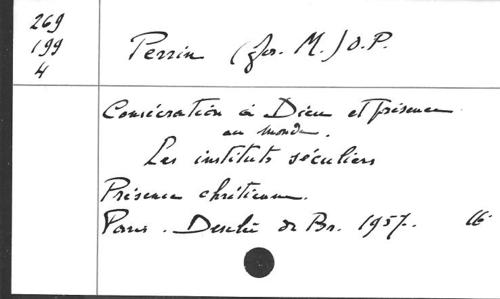 269
199
4
Perrin (Jos. M.) O.P.
Consécration à Dieu et présence
au monde.
Les instituts séculiers
Présence chrétienne.
Paris. Desclée de Br. 1957. 16°